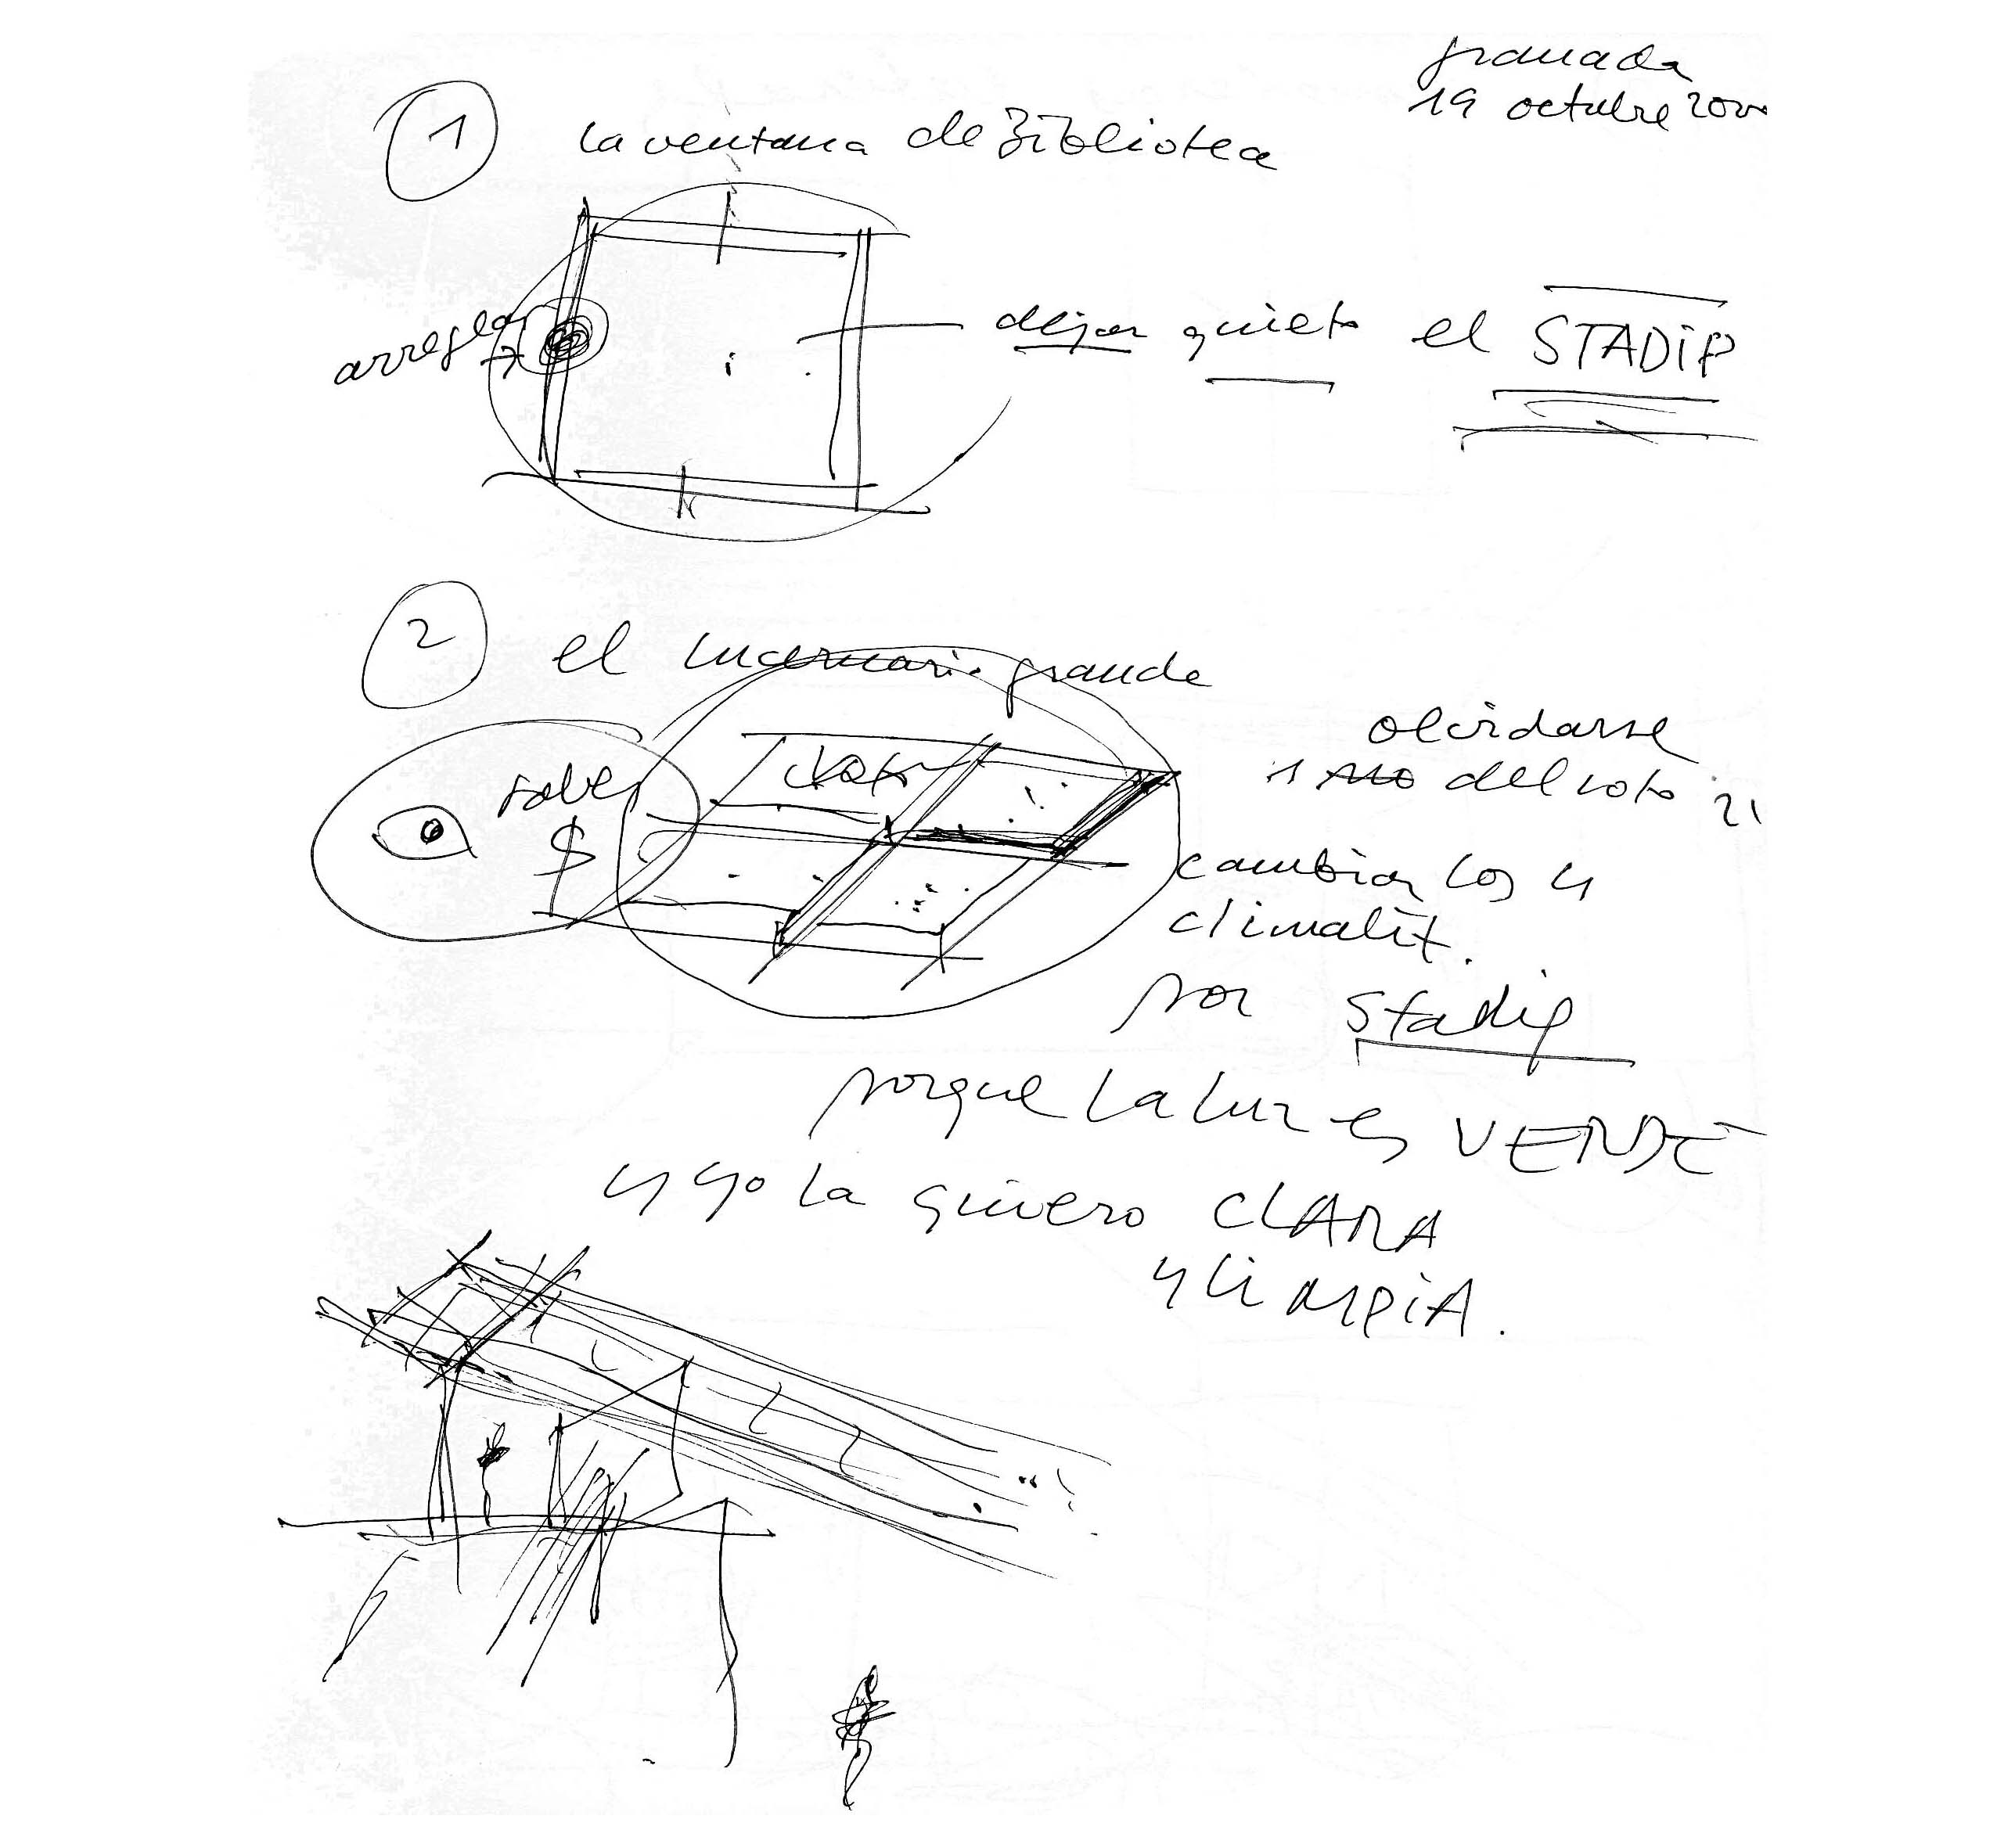 granada
19 octubre 2000
1
la ventana de Biblioteca
arreglar
dejar quieto el STADiP
2
el lucernario grande
saber
$
olvidarse
del roto
cambiar los 4
climalit.
por Stadip
porque la luz es VERDE
y yo la quiero CLARA
y LiMPiA.